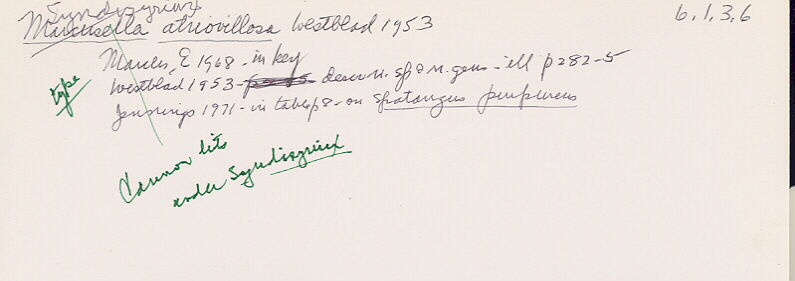 Syndisyrinx
Marcusella atriovillosa Westblad 1953
6,1,3,6
Marcus, E 1968 - in key
type
Westblad 1953 - descr n. sp & n. genus - ill p 282-5
Jennings 1971 - in table p8 - on Spatangus purpureus
Cannon lits
under Syndisyrinx